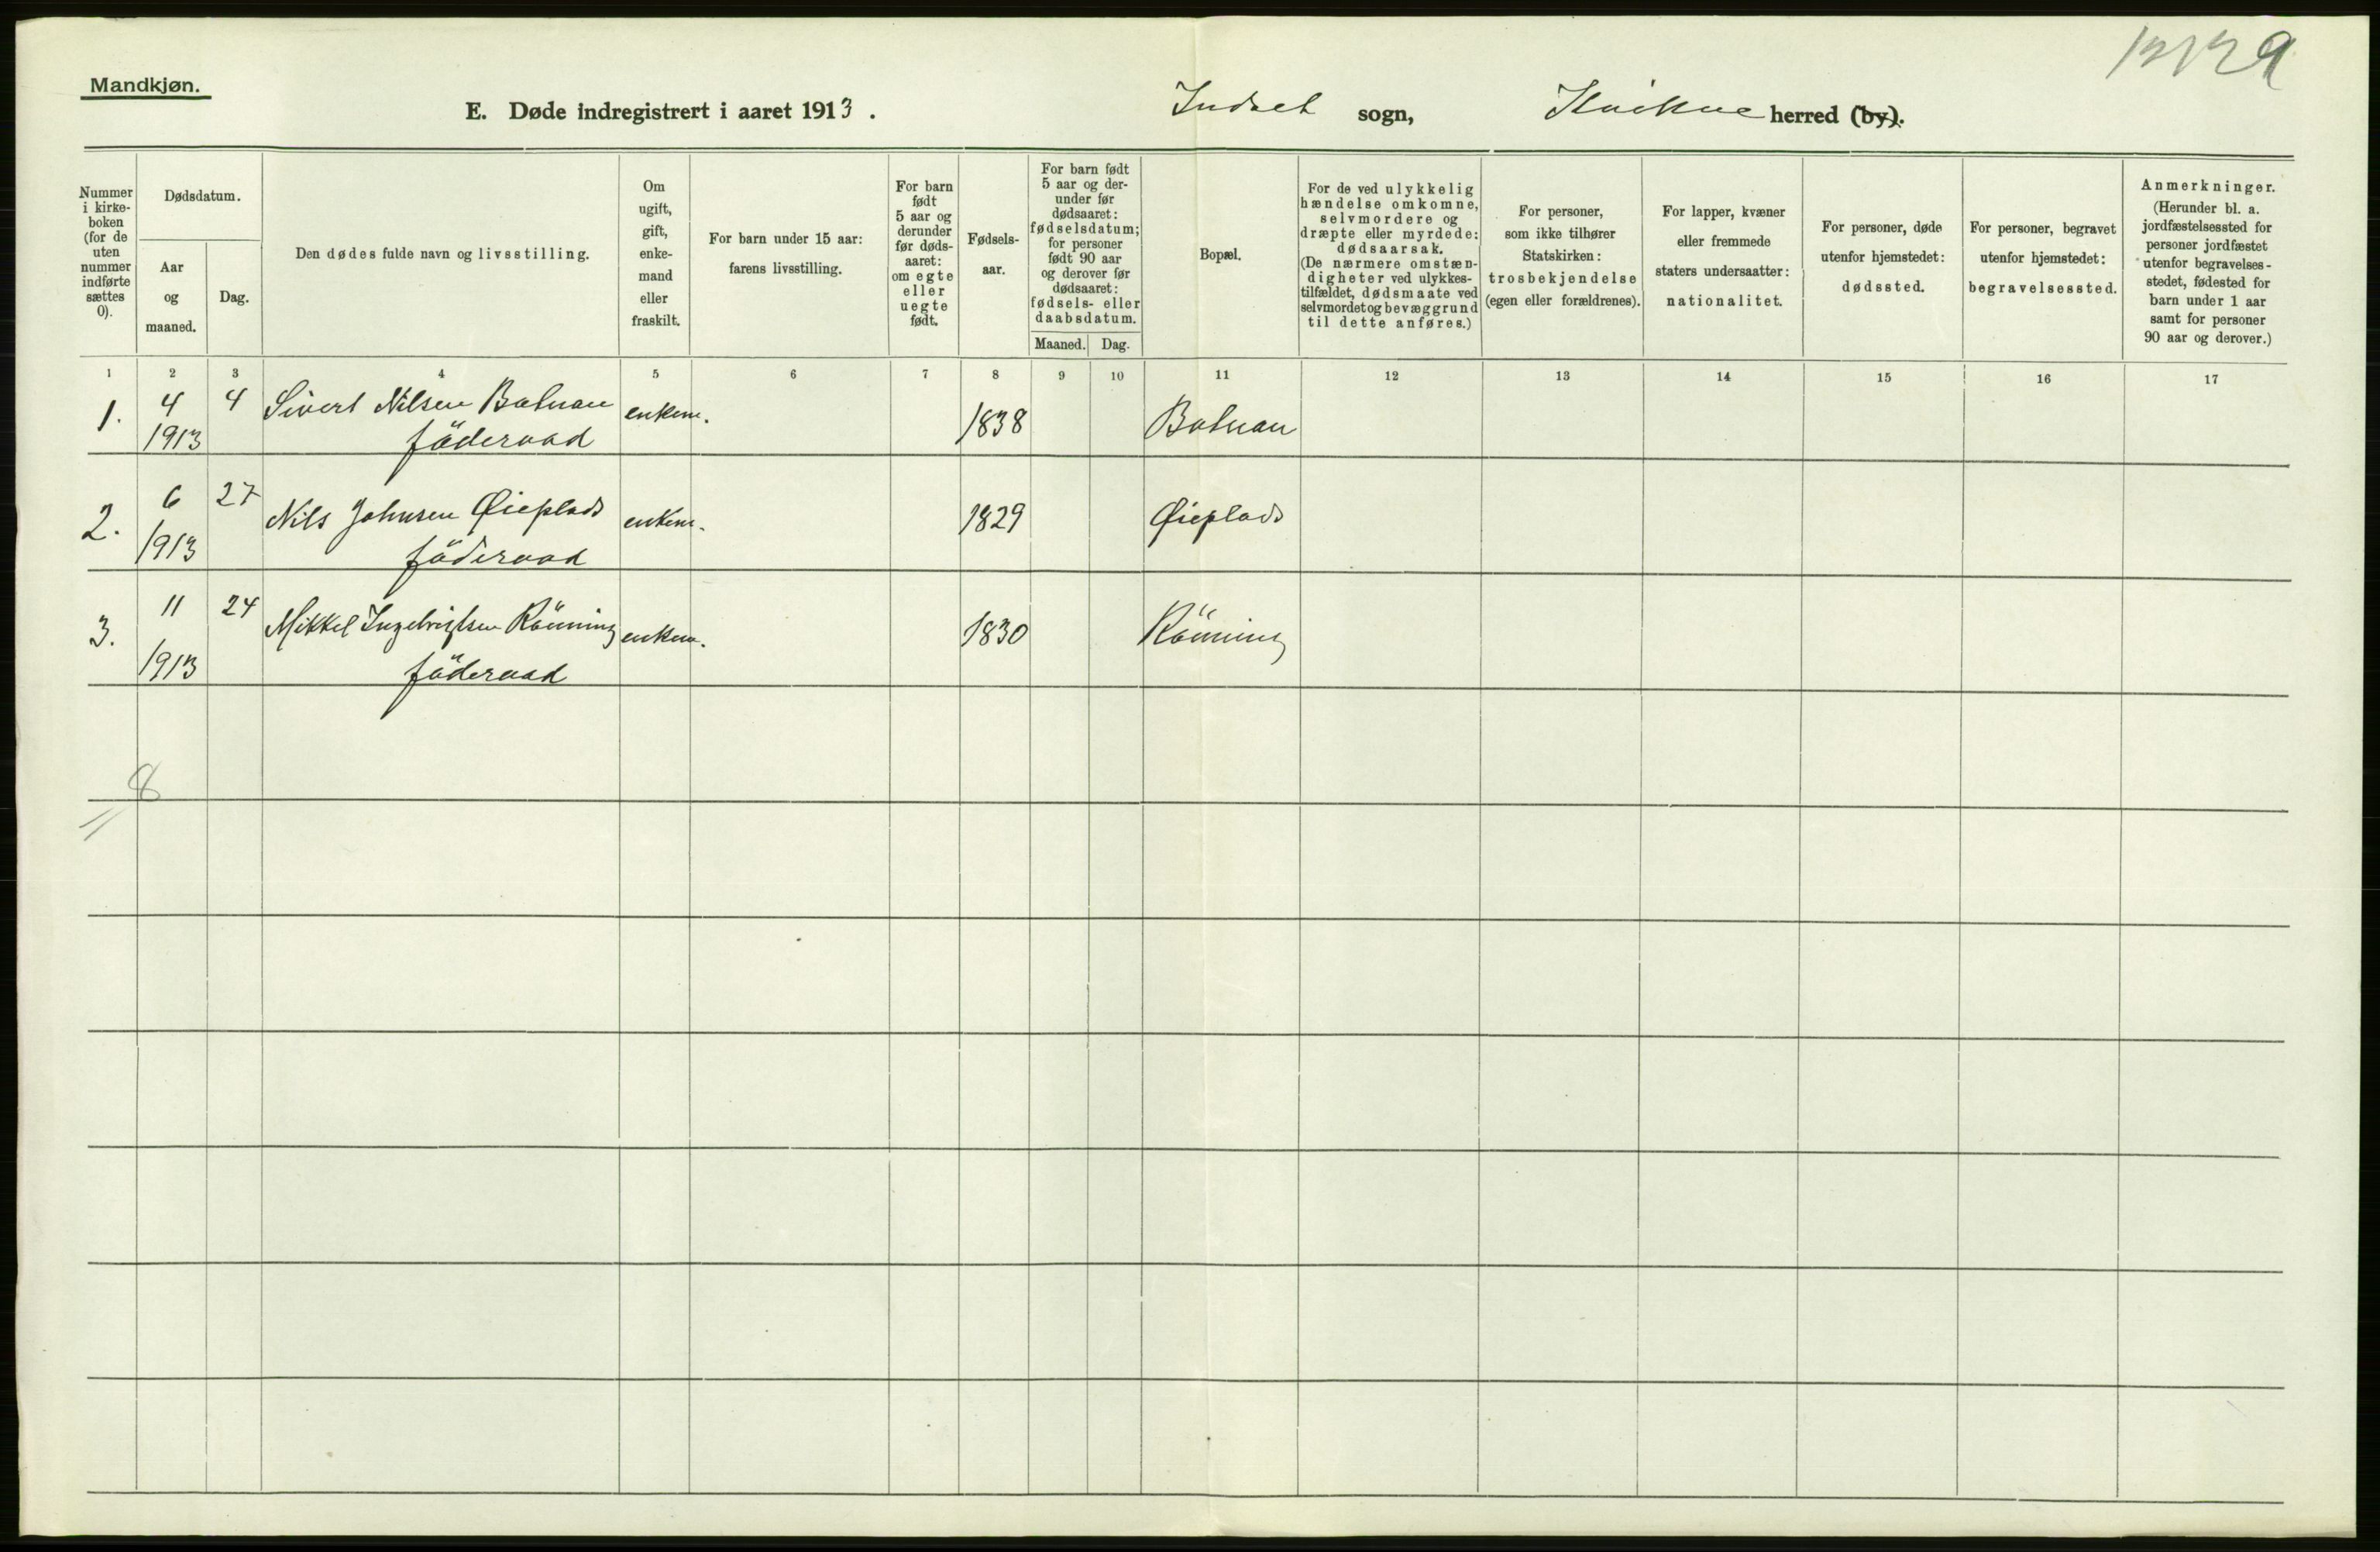 Mandkjøn.
E. Døde indregistrert i aaret 1913.
Indset sogn, Kvikne herred (by).
Nummer i kirke-boken (for de uten nummer indførte sættes 0).
Dødsdatum.
Aar og maaned.
Dag.
Den dødes fulde navn og livsstilling.
Om ugift, gift, enke-mand eller fraskilt.
For barn under 15 aar: farens livsstilling.
For barn født 5 aar og derunder før døds-aaret: om egte eller uegte født.
Fødsels-aar.
For barn født 5 aar og der-under før dødsaaret: fødselsdatum; for personer født 90 aar og derover før dødsaaret: fødsels- eller daabsdatum.
Maaned. Dag.
Bopæl.
For de ved ulykkelig hændelse omkomne, selvmordere og dræpte eller myrdede: dødsaarsak. (De nærmere omstæn-digheter ved ulykkes-tilfældet, dødsmaate ved selvmordet og bevæggrund til dette anføres.)
For personer, som ikke tilhører Statskirken: trosbekjendelse (egen eller forældrenes).
For lapper, kvæner eller fremmede staters undersaatter: nationalitet.
For personer, døde utenfor hjemstedet: dødssted.
For personer, begravet utenfor hjemstedet: begravelsessted.
Anmerkninger. (Herunder bl. a. jordfæstelsessted for personer jordfæstet utenfor begravelses-stedet, fødested for barn under 1 aar samt for personer 90 aar og derover.)
1 2 3 4 5 6 7 8 9 10 11 12 13 14 15 16 17
1. 4 1913 4 Sivert Nilsen enkem. 1838
föderaad
2. 6 1913 27 Nils Johnsen Øieplads enkem. 1829 Øieplads
föderaad
3. 11 1913 24 Mikkel Ingebrigtsen Rönning enkem. 1830 Rönning
föderaad
8